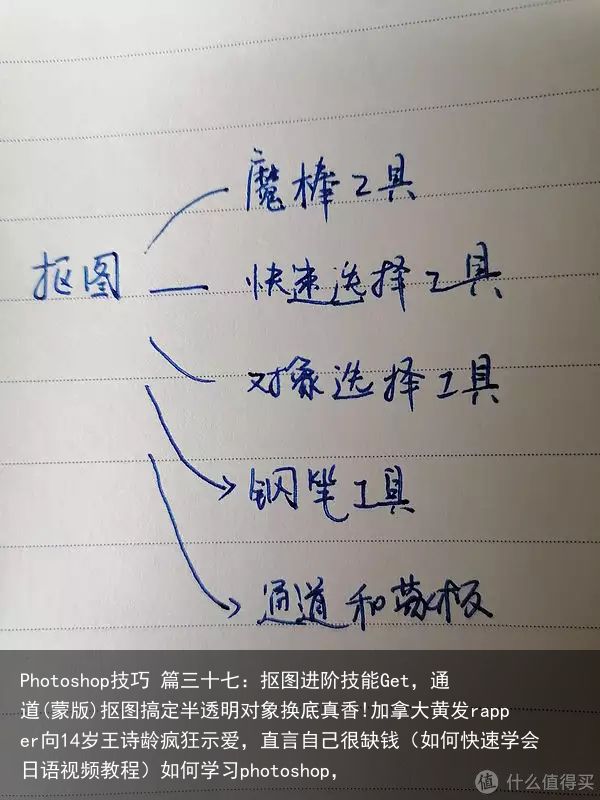 魔棒工具
抠图
快速选择工具
对象选择工具
钢笔工具
通道和蒙板
Photoshop技巧 篇三十七：抠图进阶技能Get，通
道(蒙版)抠图搞定半透明对象换底真香!加拿大黄发rapp
er向14岁王诗龄疯狂示爱，直言自己很缺钱（如何快速学会
日语视频教程）如何学习photoshop，
值 什么值得买